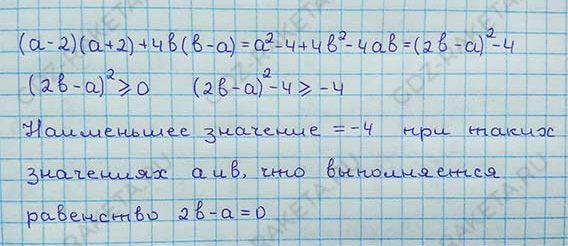 (a-2)(a+2)+4в(в-a)=a²-4+4в²-4aв=(2в-a)²-4
(2в-a)²⩾0 (2в-a)²-4⩾-4
Наименьшее значение =-4 при таких
значениях a и в, что выполняется
равенство 2в-a=0
GDZ-RAKETA.RU